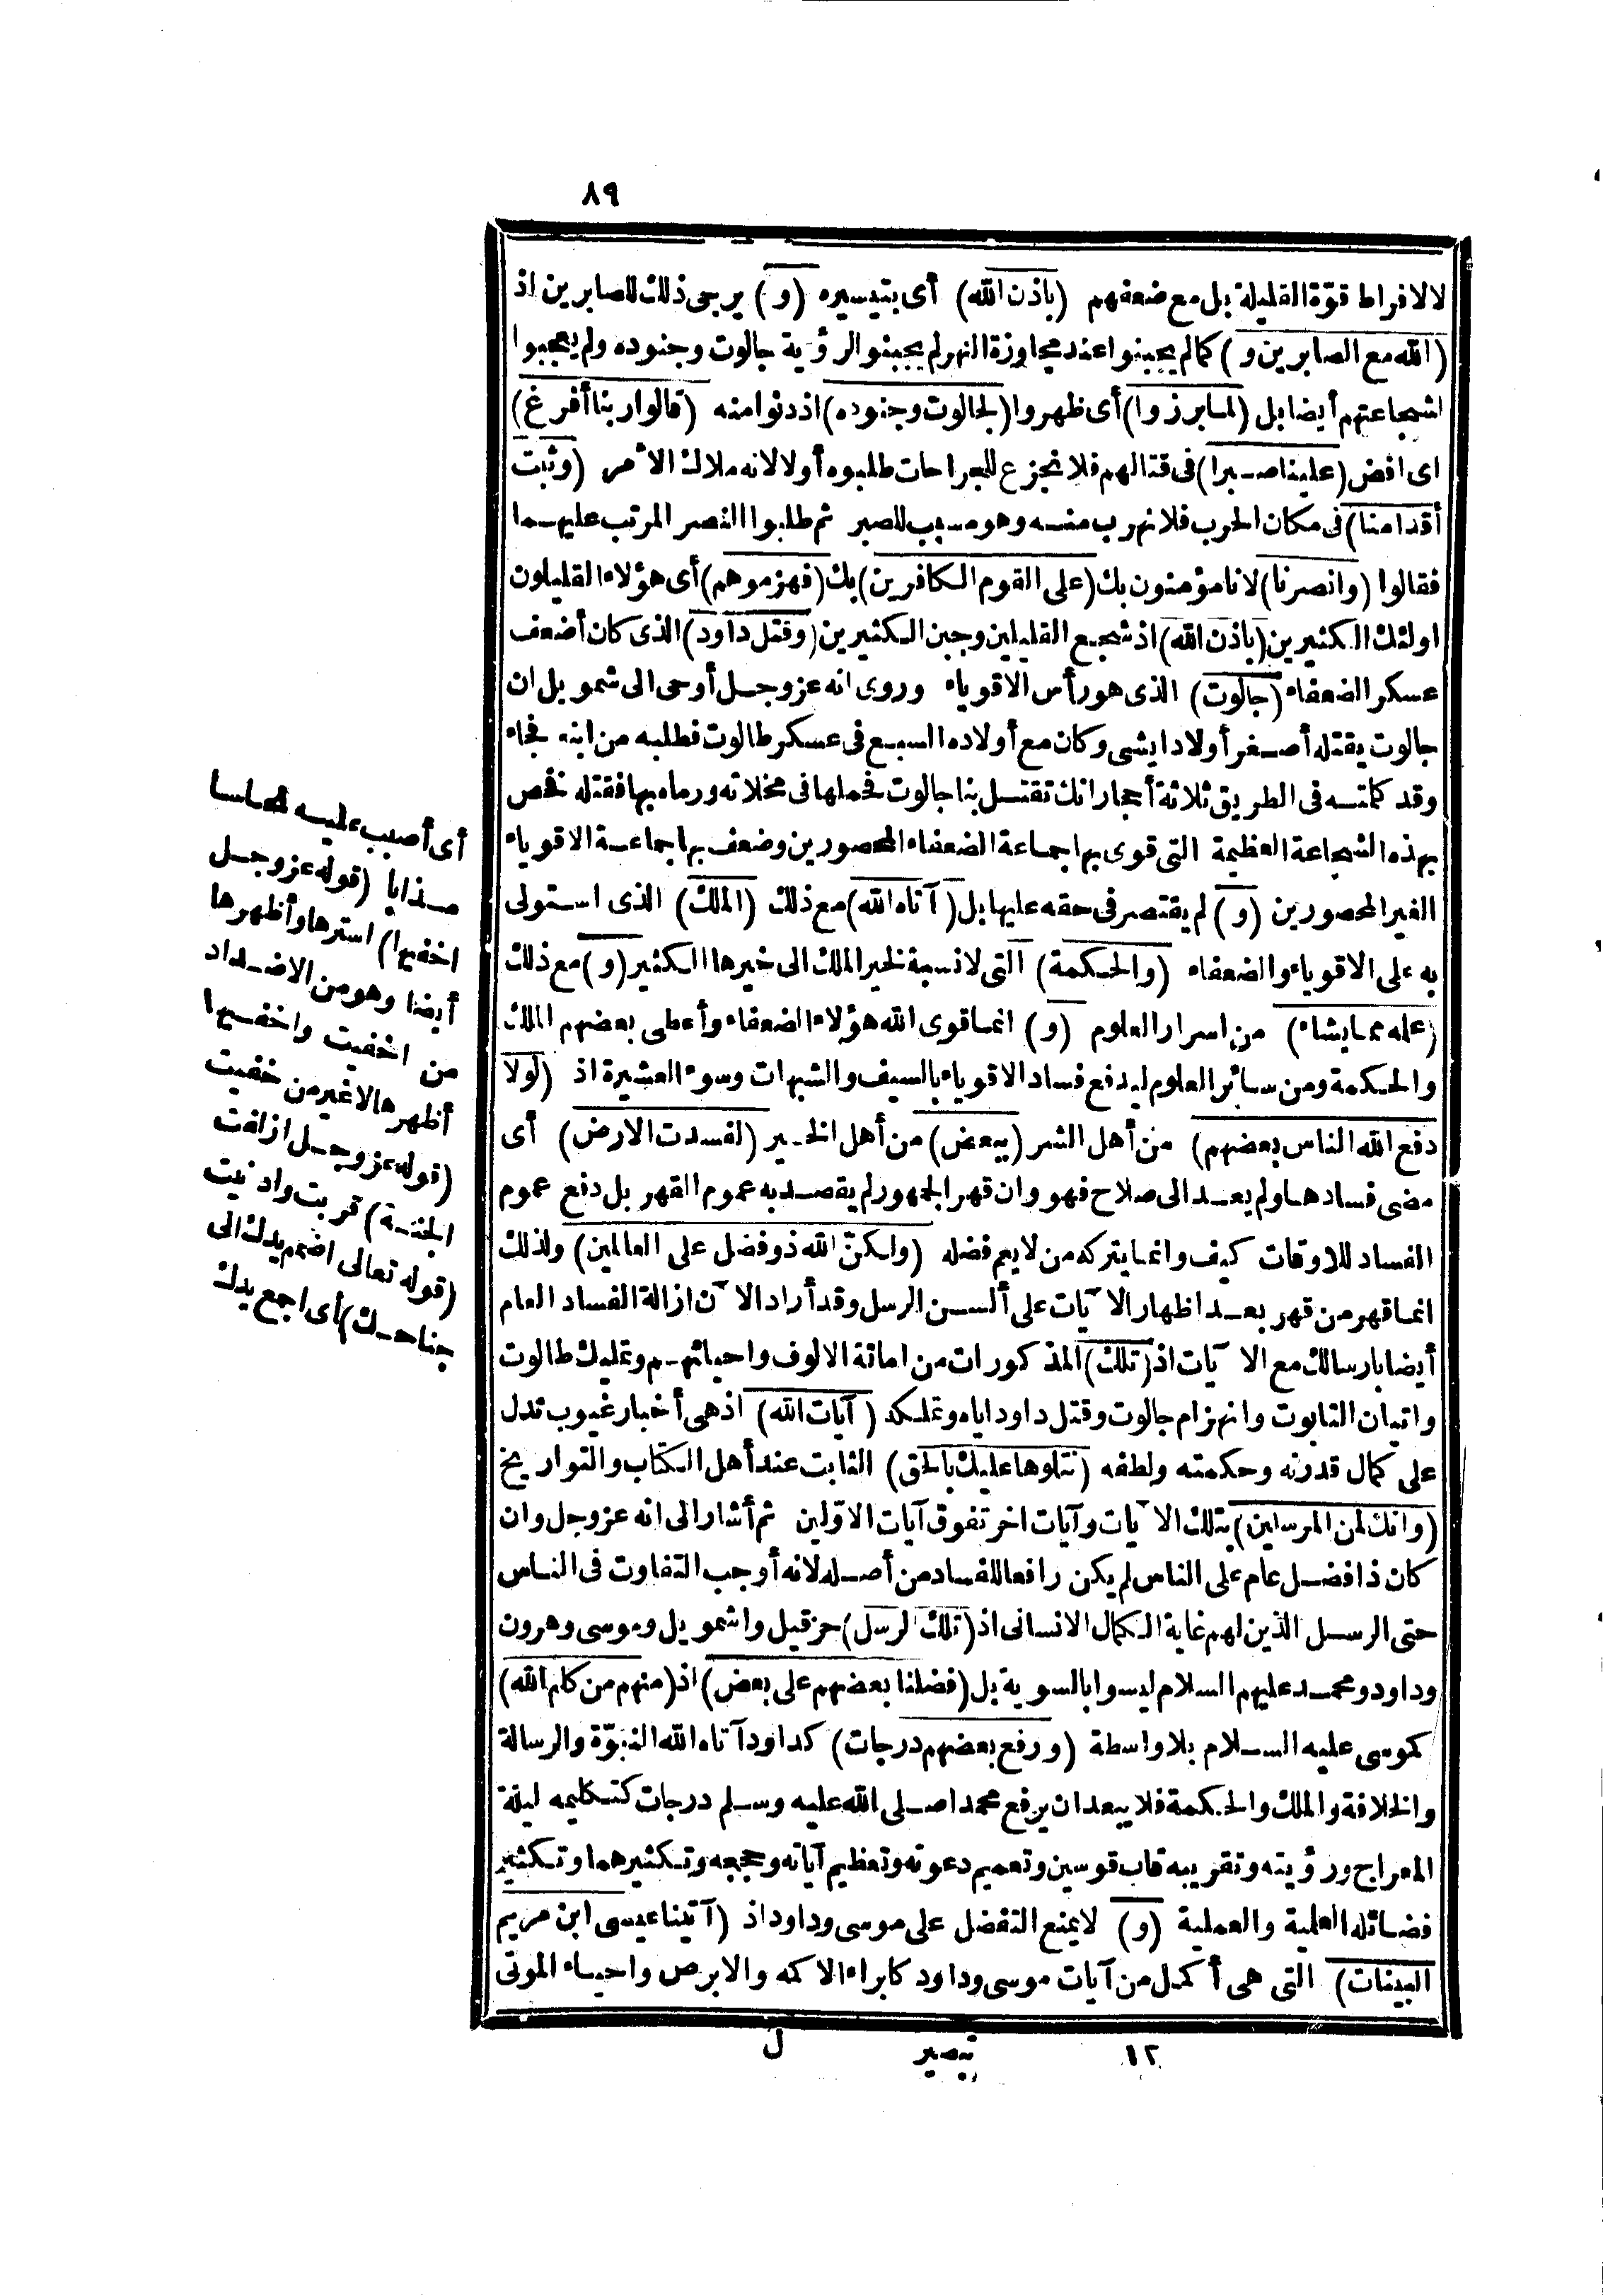 ٨٩
لالافراط قوّة القليلة بل مع ضعفهم (باذن الله) أى بتيسيره (و) يرجى ذلك للصابرين اذ
(الله مع الصابرين و) كمالم يجبنوا عند مجاوزة النهر لم يجبنوا لرؤية جالوت وجنوده ولم يعجبوا
لشجاعتهم أيضا بل (لما برزوا) أى ظهروا (لجالوت وجنوده) اذ دنوا منه (قالوا ربنا أفرغ)
اى افض (علينا صبرا) فى قتالهم فلا نجزع للجراحات طلبوه أولا لانه ملاك الأمر (وثبت
أقدامنا) فى مكان الحرب فلا نهرب منه وهو مسبب للصبر ثم طلبوا النصر المرتب عليهما
فقالوا (وانصرنا) لانا مؤمنون بك (على القوم الكافرين) بك (فهزموهم) أى هؤلاء القليلون
اولئك الكثيرين (باذن الله) اذ شجع القليلين وجبن الكثيرين (وقتل داود) الذى كان أضعف
عسكر الضعفاء (جالوت) الذى هو رأس الاقوياء وروى انه عز وجل أوحى الى شمويل ان
جالوت يقتله أصغر أولاد ايشى وكان مع أولاده السبع فى عسكر طالوت فطلبه من ابنه فجاء
وقد كلمته فى الطريق ثلاثة أحجار انك تقتل بنا جالوت فحملها فى مخلاته ورماه بها فقتله فخص
بهذه الشجاعة العظيمة التى قوى بها جماعة الضعفاء المحصورين وضعف بها جماعة الاقوياء
الغير المحصورين (و) لم يقتصر فى حقه عليها بل (آتاه الله) مع ذلك (الملك) الذى استولى
به على الاقوياء والضعفاء (والحكمة) التى لا نسبة لخير الملك الى خيرها الكثير (و) مع ذلك
(علمه مما يشاء) من اسرار العلوم (و) انما قوى الله هؤلاء الضعفاء وأعطى بعضهم الملك
والحكمة ومن سائر العلوم ليدفع فساد الاقوياء بالسيف والشبهات وسوء العشيرة اذ (لولا
دفع الله الناس بعضهم) من أهل الشر (ببعض) من أهل الخير (لفسدت الارض) أى
مضى فسادها ولم يعد الى صلاح فهو وان قهر الجمهور لم يقصد به عموم القهر بل دفع عموم
الفساد للاوقات كيف وانما يتركه من لا يعم فضله (ولكنّ الله ذو فضل على العالمين) ولذلك
انما قهر من قهر بعد اظهار الآيات على ألسن الرسل وقد أراد الآن ازالة الفساد العام
أيضا بارسالك مع الآيات اذ (تلك) المذكورات من اماتة الالوف واحيائهم وتمليك طالوت
واتيان التابوت وانهزام جالوت وقتل داود اياه وتملكه (آيات الله) اذ هى أخبار غيوب تدل
على كمال قدرته وحكمته ولطفه (نتلوها عليك بالحق) الثابت عند أهل الكتاب والتواريخ
(وانك لمن المرسلين) بتلك الآيات وآيات اخر تفوق آيات الاوّلين ثم أشار الى انه عز وجل وان
كان ذا فضل عام على الناس لم يكن رافعا للفساد من أصله لانه أوجب التفاوت فى الناس
حتى الرسل الذين لهم غاية الكمال الانسانى اذ (تلك الرسل) حزقيل واشمويل وموسى وهرون
وداود ومحمد عليهم السلام ليسوا بالسوية بل (فضلنا بعضهم على بعض) اذ (منهم من كلم الله)
كموسى عليه السلام بلا واسطة (ورفع بعضهم درجات) كداود آتاه الله النبوّة والرسالة
والخلافة والملك والحكمة فلا يبعد ان يرفع محمدا صلى الله عليه وسلم درجات كتكليمه ليلة
المعراج ورؤيته وتقريبه قاب قوسين وتعميم دعوته وتعظيم آياته وحججه وتكثيرهما وتكثير
فضائله العلمية والعملية (و) لا يمنع التفضل على موسى وداود اذ (آتينا عيسى ابن مريم
البينات) التى هى أكمل من آيات موسى وداود كابراء الاكمه والابرص واحياء الموتى
أى أصبب عليه نحاسا
مذابا (قوله عز وجل
اخفيها) استرها وأظهرها
أيضا وهو من الاضداد
من اخفيت واخفيها
أظهرها لاغير من خفيت
(قوله عز وجل ازلفت
الجنة) قربت وادنيت
(قوله تعالى اضمم يدك الى
جناحك) أى اجمع يدك
١٢ تبصير ل